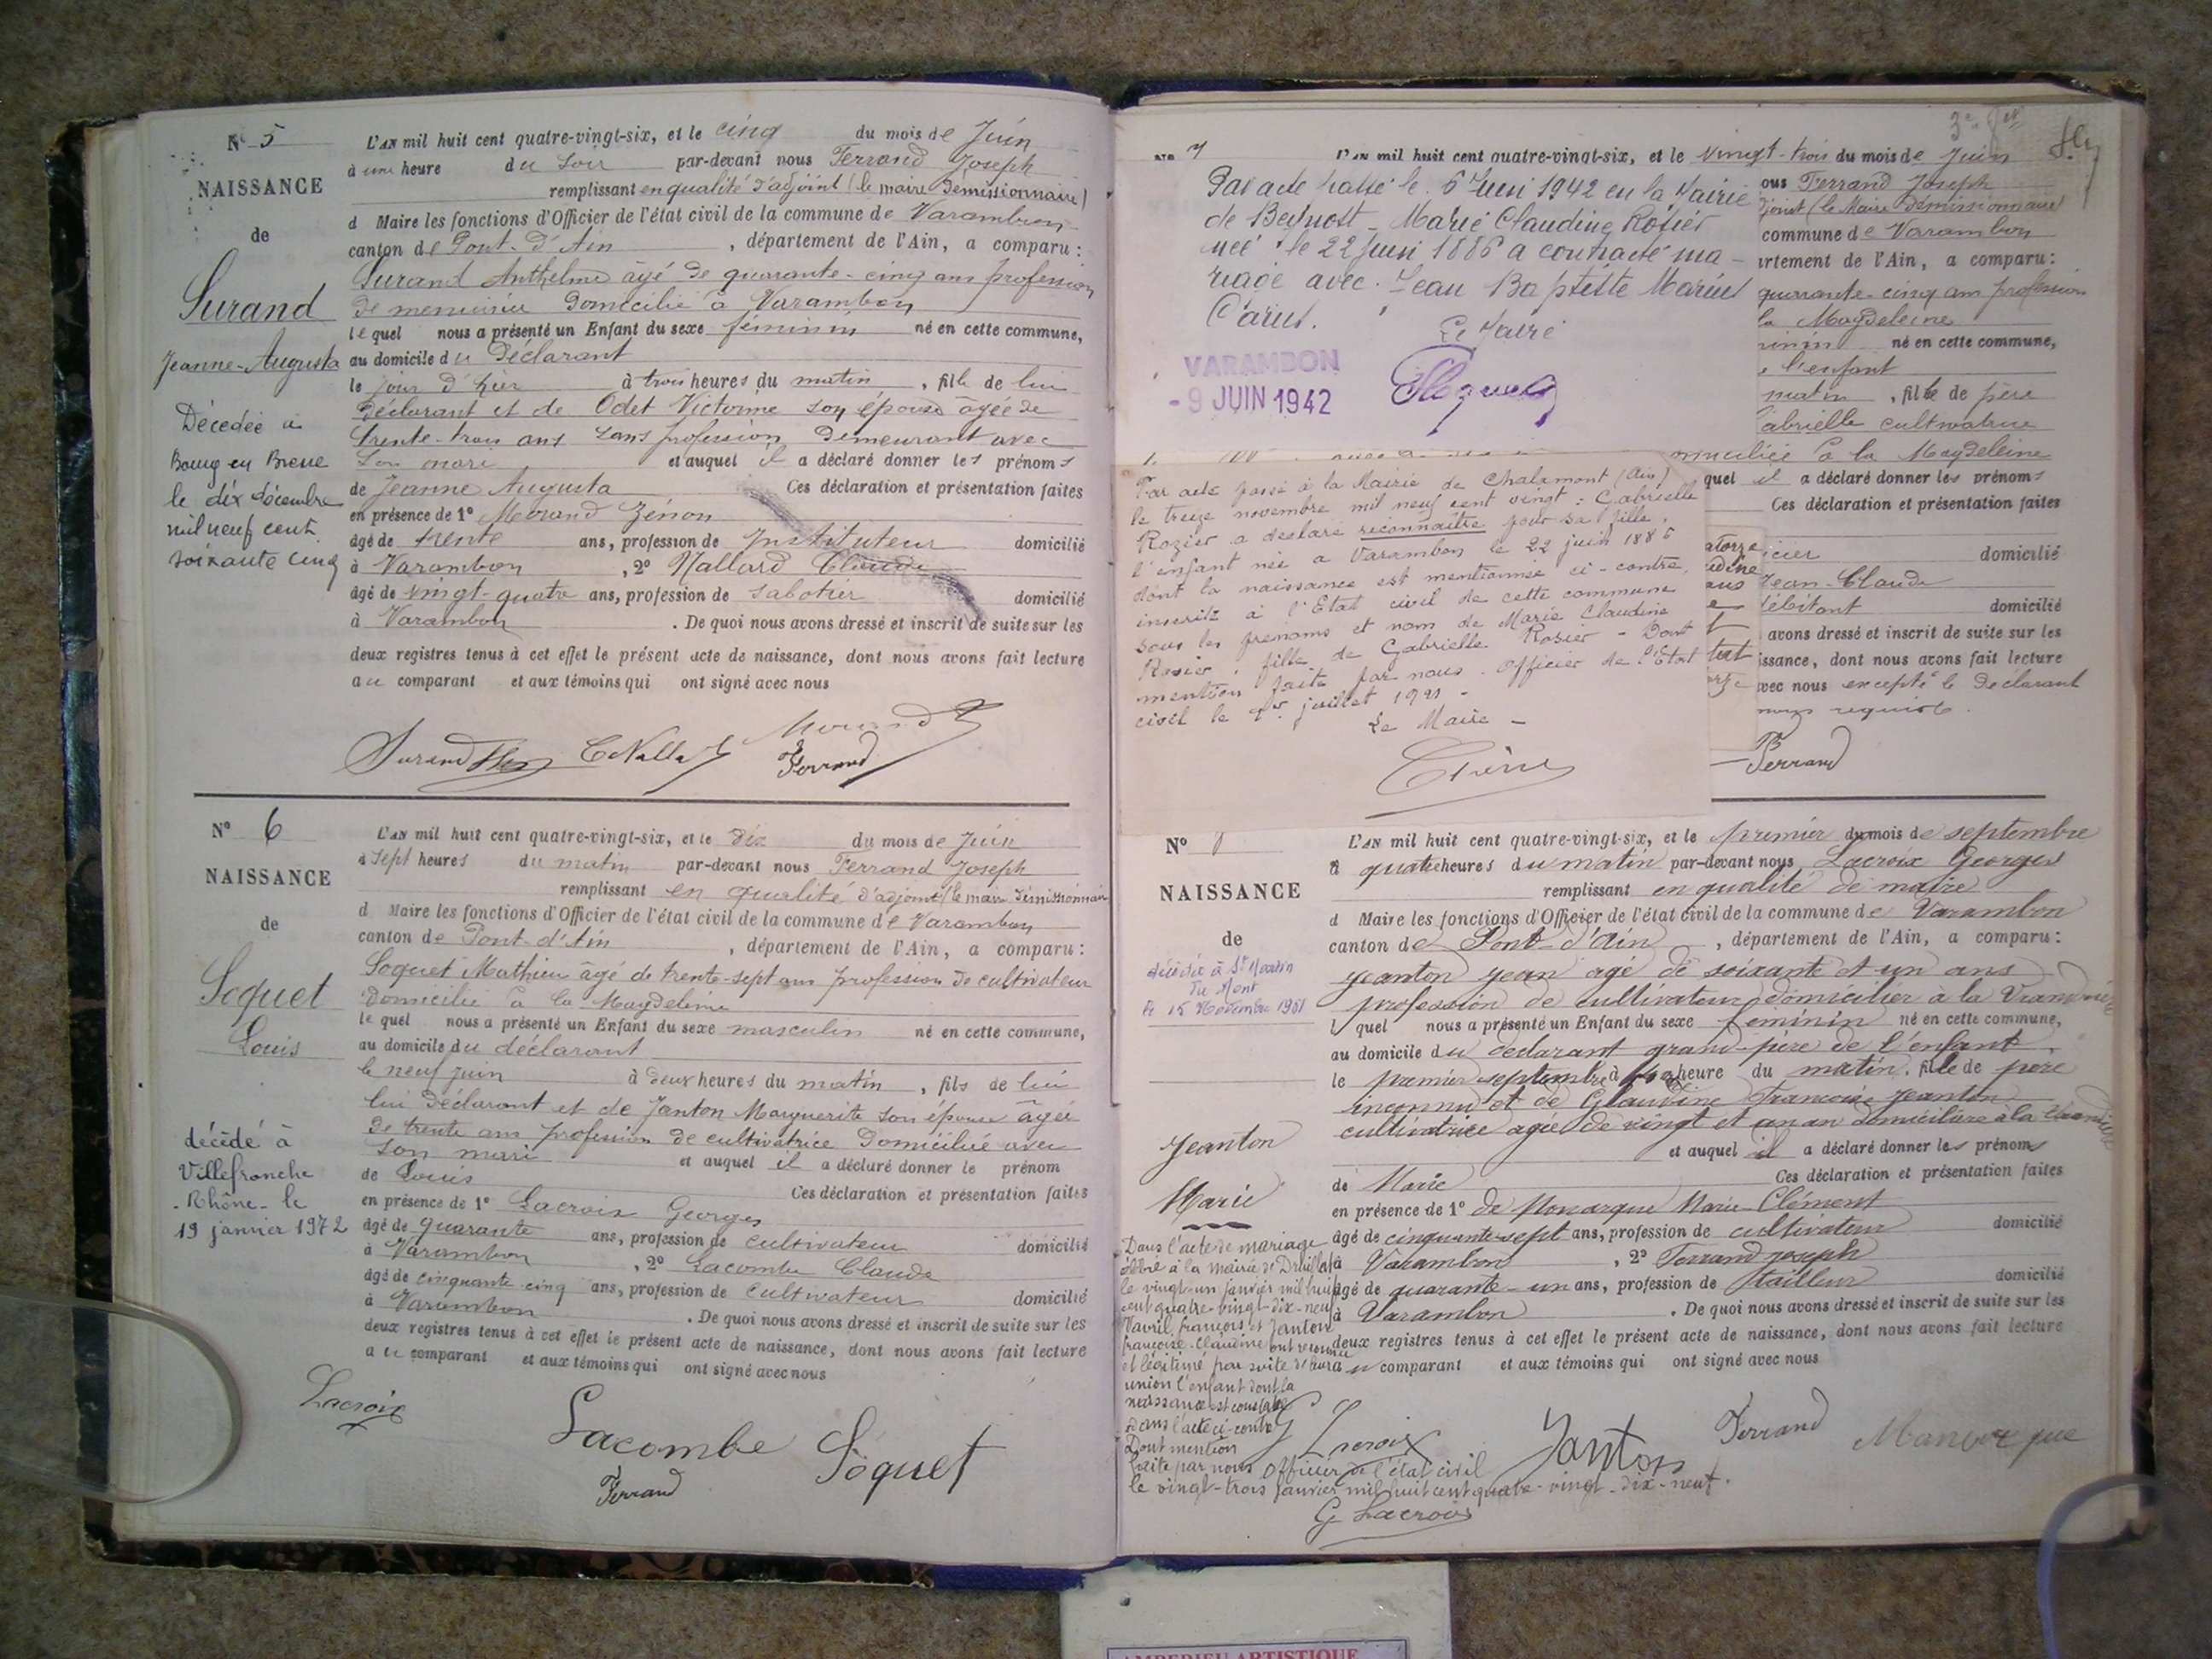 N° 5
NAISSANCE
de
Surand
Jeanne-Augusta
Décédée à
Bourg en Bresse
le dix décembre
mil neuf cent
soixante cinq
L'AN mil huit cent quatre-vingt-six, et le cinq du mois de Juin
à une heure du soir par-devant nous Ferrand Joseph
remplissant en qualité d'adjoint (le maire démissionnaire)
d Maire les fonctions d'Officier de l'état civil de la commune de Varambon
canton de Pont-d'Ain, département de l'Ain, a comparu:
Surand Anthelme âgé de quarante-cinq ans profession
de menuisier domicilié à Varambon
lequel nous a présenté un Enfant du sexe féminin né en cette commune,
au domicile du Déclarant
le jour d'hier à trois heures du matin, fille de lui
déclarant et de Odet Victorine son épouse âgée de
trente-trois ans sans profession demeurant avec
son mari et auquel il a déclaré donner les prénoms
de Jeanne Augusta Ces déclaration et présentation faites
en présence de 1° Morand Zénon
âgé de trente ans, profession de Instituteur domicilié
à Varambon, 2° Nallard Claude
âgé de vingt-quatre ans, profession de sabotier domicilié
à Varambon. De quoi nous avons dressé et inscrit de suite sur les
deux registres tenus à cet effet le présent acte de naissance, dont nous avons fait lecture
au comparant et aux témoins qui ont signé avec nous
Morand
Surand C Nallard Ferrand
N° 6
NAISSANCE
de
Soquet
Louis
décédé à
Villefranche
-Rhône- le
19 janvier 1972
L'AN mil huit cent quatre-vingt-six, et le dix du mois de Juin
à sept heures du matin par-devant nous Ferrand Joseph
remplissant en qualité d'adjoint (le maire démissionnaire
d Maire les fonctions d'Officier de l'état civil de la commune de Varambon
canton de Pont-d'Ain, département de l'Ain, a comparu:
Soquet Mathieu âgé de trente-sept ans profession de cultivateur
domicilié à la Magdeleine
lequel nous a présenté un Enfant du sexe masculin né en cette commune,
au domicile du déclarant
le neuf juin à deux heures du matin, fils de lui
lui déclarant et de Janton Marguerite son épouse âgée
de trente ans profession de cultivatrice domiciliée avec
son mari et auquel il a déclaré donner le prénom
de Louis Ces déclaration et présentation faites
en présence de 1° Lacroix Georges
âgé de quarante ans, profession de cultivateur domicilié
à Varambon, 2° Lacombe Claude
âgé de cinquante-cinq ans, profession de cultivateur domicilié
à Varambon. De quoi nous avons dressé et inscrit de suite sur les
deux registres tenus à cet effet le présent acte de naissance, dont nous avons fait lecture
au comparant et aux témoins qui ont signé avec nous
Lacroix
Lacombe Soquet
Ferrand
N° 7 L'AN mil huit cent quatre-vingt-six, et le vingt-trois du mois de Juin
Par acte passé le 6 Juin 1942 en la Mairie
de Beynost - Marie Claudine Rozier
née le 22 juin 1886 a contracté ma-
riage avec Jean Baptiste Marius
Carus.
Le Maire
VARAMBON
- 9 JUIN 1942
ous Ferrand Joseph
djoint (le Maire démissionnaire)
commune de Varambon
rtement de l'Ain, a comparu:
quarante-cinq ans profession
la Magdeleine
minin né en cette commune,
e l'enfant
matin, fille de père
abrielle cultivatrice
omiciliée à la Magdeleine
quel il a déclaré donner les prénoms
Ces déclaration et présentation faites
icier domicilié
Jean-Claude
débitant domicilié
avons dressé et inscrit de suite sur les
issance, dont nous avons fait lecture
avec nous excepté le déclarant
nous requis
Ferrand
Par acte passé à la Mairie de Chalamont (Ain)
le treize novembre mil neuf cent vingt: Gabrielle
Rozier a déclaré reconnaître pour sa fille,
l'enfant née à Varambon le 22 juin 1886
dont la naissance est mentionnée ci-contre,
inscrite à l'Etat civil de cette commune
sous les prénoms et nom de Marie Claudine
Rosier, fille de Gabrielle Rosier - Dont
mention faite par nous Officier de l'Etat
civil le 1er juillet 1921 -
Le Maire -
N° 8
NAISSANCE
de
décédée à St Martin
du Mont
le 15 Novembre 1961
Jeanton
Marie
L'AN mil huit cent quatre-vingt-six, et le premier du mois de septembre
à quatre heures du matin par-devant nous Lacroix Georges
remplissant en qualité de maire
d Maire les fonctions d'Officier de l'état civil de la commune de Varambon
canton de Pont-d'Ain, département de l'Ain, a comparu:
Jeanton Jean agé de soixante et un ans
profession de cultivateur domicilier à la
lquel nous a présenté un Enfant du sexe féminin né en cette commune,
au domicile du déclarant grand-père de l'enfant
le premier septembre à heure du matin, fille de père
inconnu et de Claudine Françoise Jeanton
cultivatrice agée de vingt et un an domiciliée à la
et auquel il a déclaré donner les prénoms
de Marie Ces déclaration et présentation faites
en présence de 1° de Monarque Marie-Clément
âgé de cinquante-sept ans, profession de cultivateur domicilié
à Varambon, 2° Ferrand Joseph
âgé de quarante-un ans, profession de tailleur domicilié
à Varambon. De quoi nous avons dressé et inscrit de suite sur les
deux registres tenus à cet effet le présent acte de naissance, dont nous avons fait lecture
au comparant et aux témoins qui ont signé avec nous
Dans l'acte de mariage
célébré à la mairie de Druillat
le vingt-un janvier mil huit
cent quatre-vingt-dix-neuf
Vavril françois et Janton
françoise-Claudine ont reconnu
et légitimé par suite de leur
union l'enfant dont la
naissance est constatée
dans l'acte ci-contre
Dont mention
faite par nous Officier de l'état civil
le vingt-trois janvier mil huit cent quatre-vingt-dix-neuf.
G Lacroix
Lacroix Janton Ferrand Manorque
AMBERIEU ARTISTIQUE